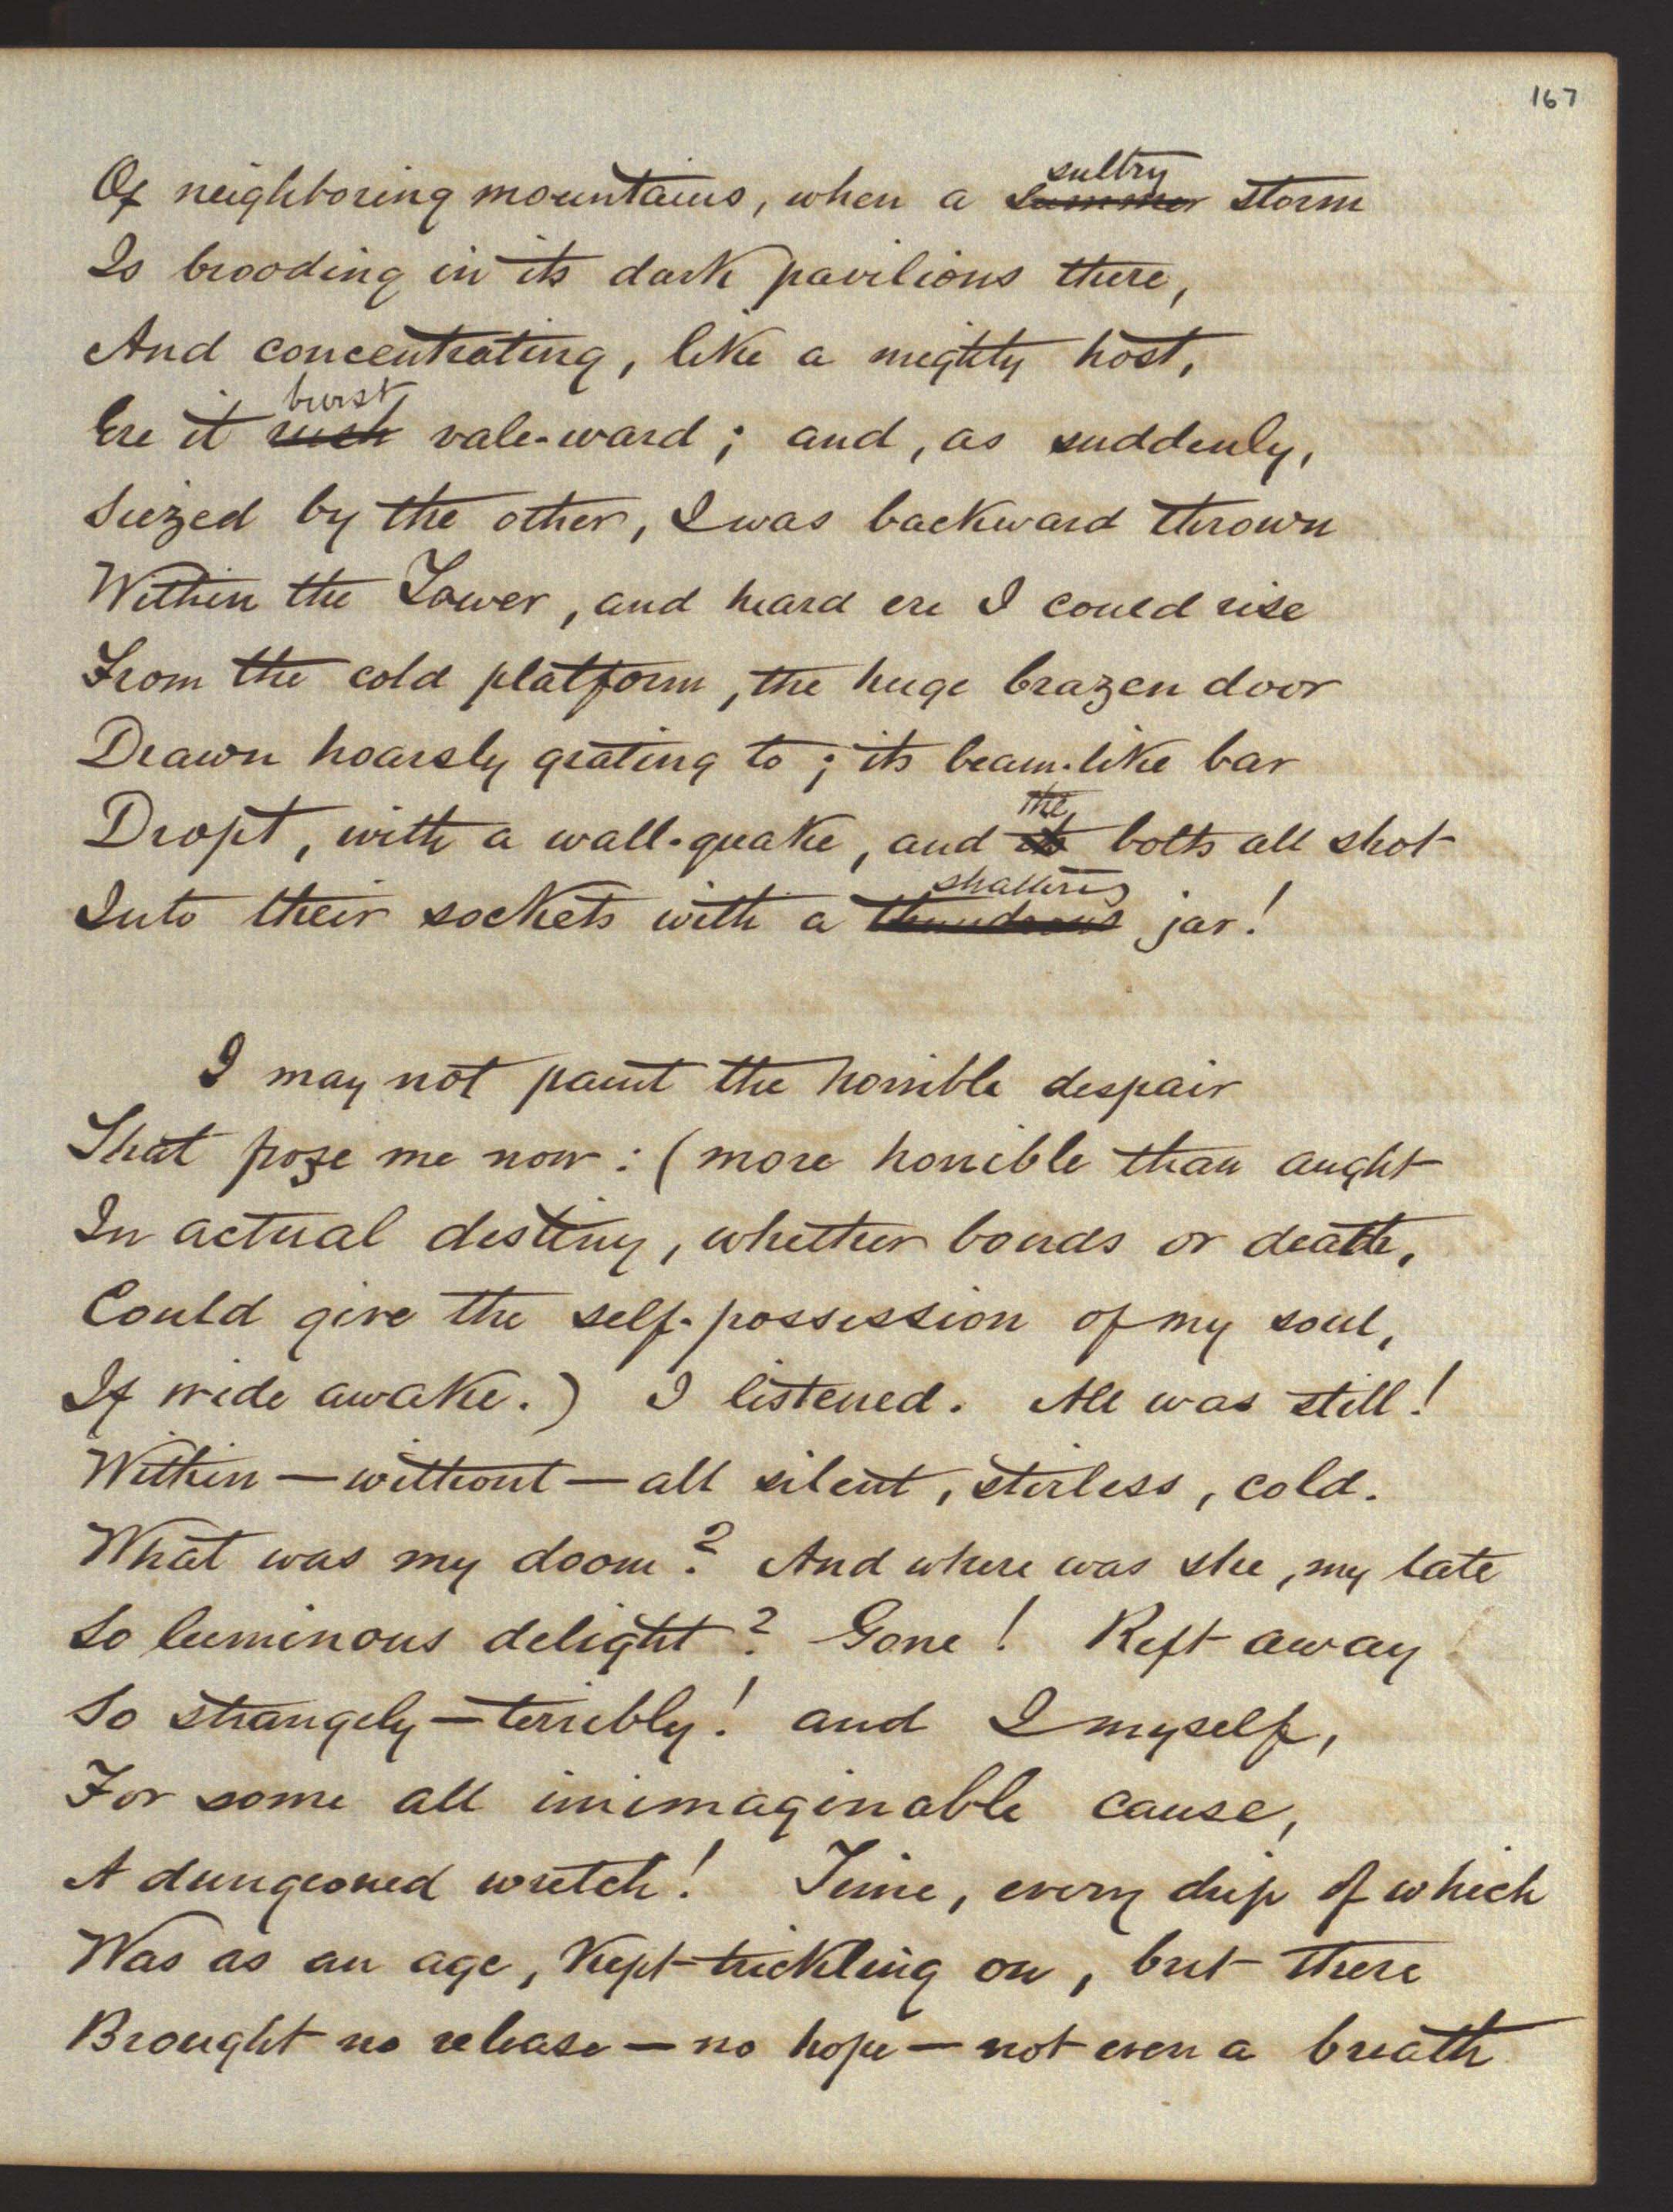 167
Of neighboring mountains, when a summer sultry storm
Is brooding in its dark pavilions there,
And concentrating, like a mighty host,
Ere it rush burst vale-ward; and, as suddenly,
Seized by the other, I was backward thrown
Within the Tower, and heard ere I could rise
From the cold platform, the huge brazen door
Drawn hoarsly grating to; its beam-like bar
Dropt, with a wall-quake, and its the bolts all shot
Into their sockets with a thundrous shattering jar!
I may not paint the horrible despair
That froze me now: (more horrible than aught
In actual destiny, whether bonds or death,
Could give the self-possession of my soul,
If wide awake.) I listened. All was still!
Within—without—all silent, stirless, cold.
What was my doom? And where was she, my late
So luminous delight? Gone! Reft away
So strangely—terribly! and I myself,
For some all inimaginable cause,
A dungeoned wretch! Time, every drip of which
Was as an age, kept trickling on, but there
Brought no release—no hope—not even a breath